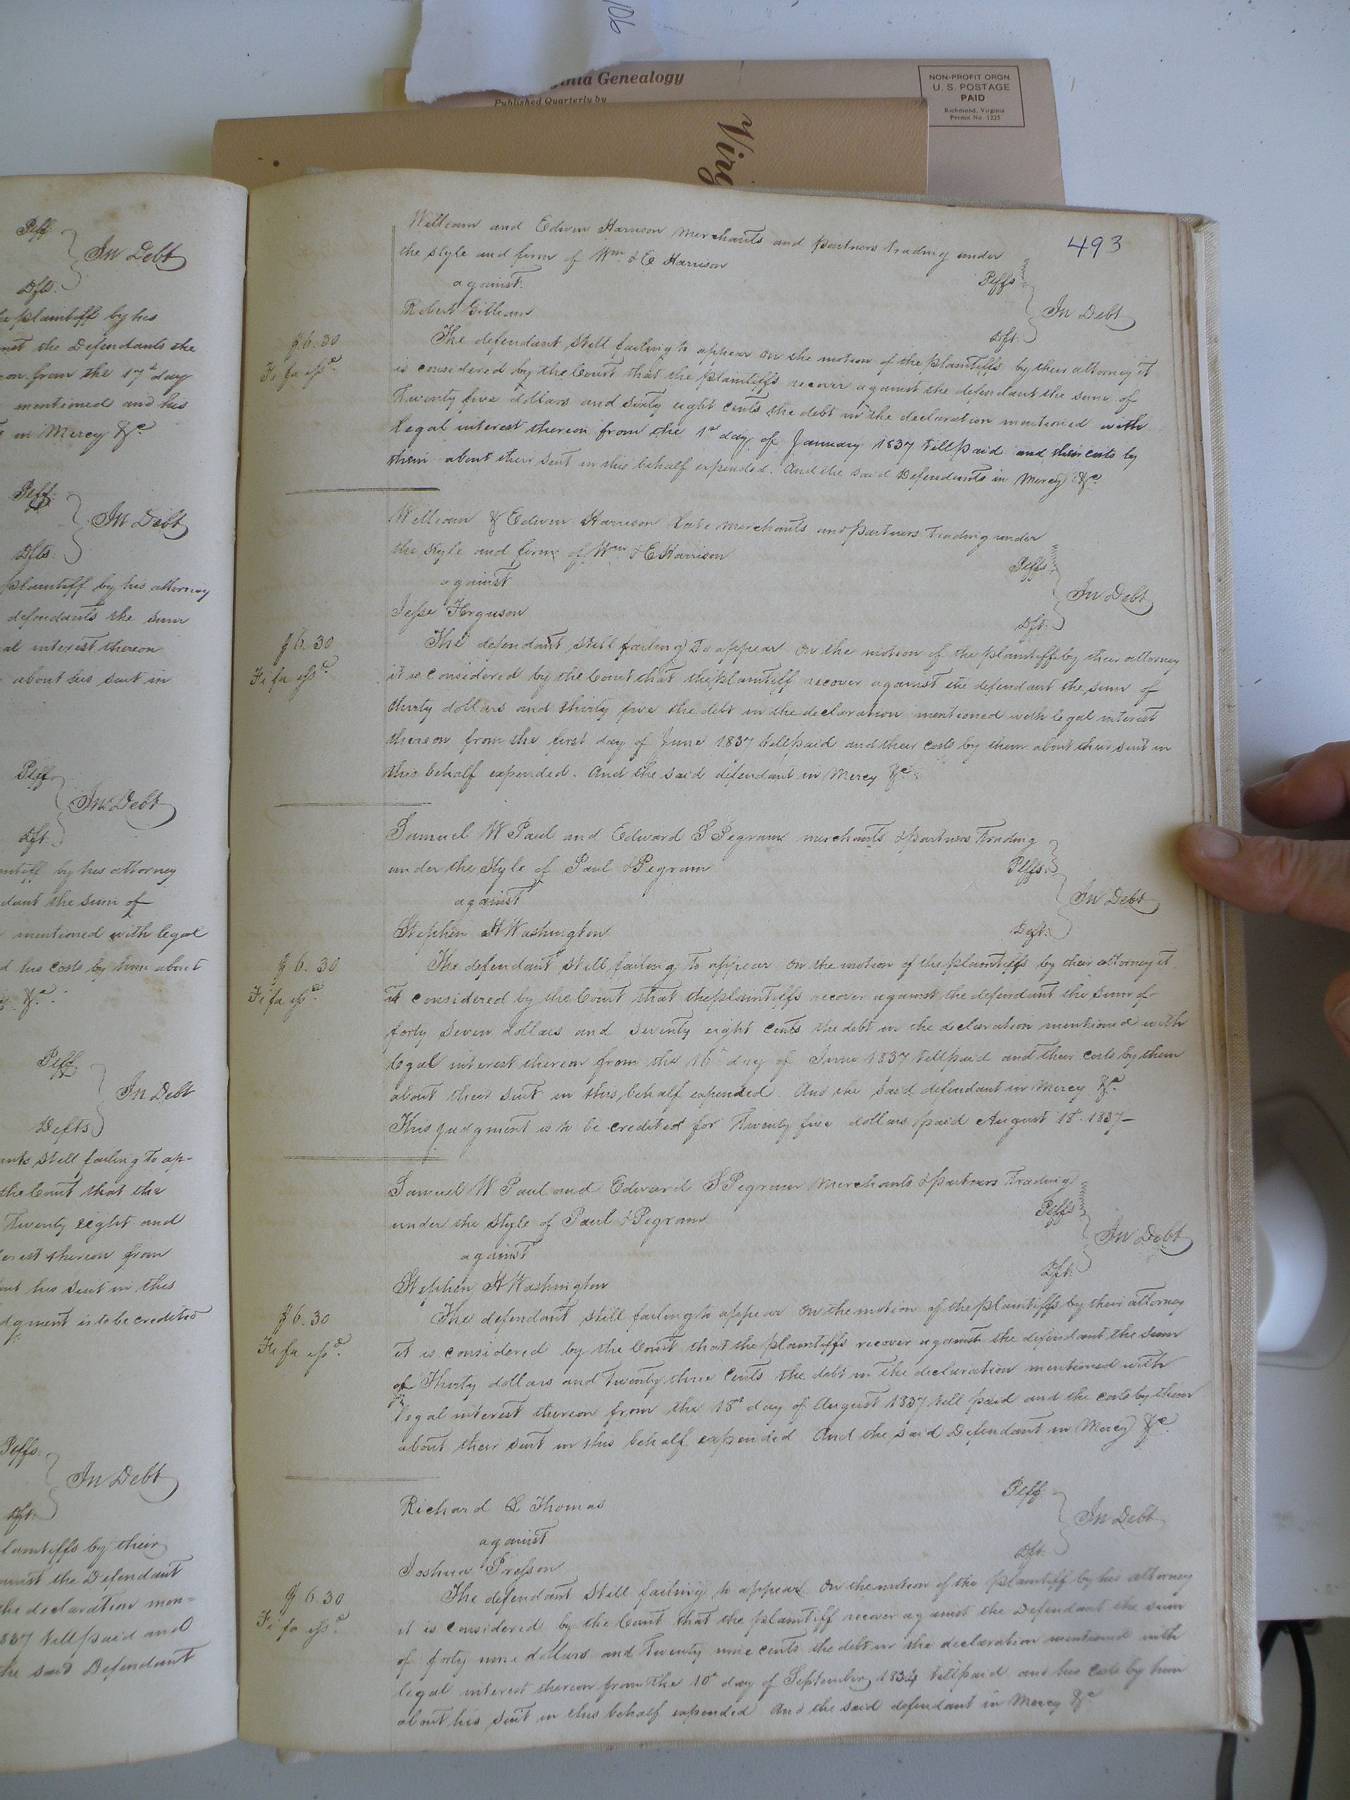 106
Virginia Genealogy
Published Quarterly by
NON-PROFIT ORGN
U.S. POSTAGE
PAID
Richmond, Virginia
Permit No. 1225
Virg
Plff
In Debt
Dft.
plaintiff by his
the Defendants the
from the 17th day
mentioned and his
in Mercy &c
Plff.
In Debt
Dfts.
plaintiff by his attorney
defendants the sum
interest thereon
about his suit in
Plff
In Debt
Dft.
by his attorney
the sum of
mentioned with legal
his costs by him about
&c.
Plff
In Debt
Defts
still failing to ap-
the Court that the
Twenty eight and
thereon from
his suit in this
is to be credited
Plffs.
In Debt
Dft.
plaintiffs by their
the Defendant
the declaration men-
1837 till paid and
the said Defendant
493
William and Edwin Harrison Merchants and partners trading under
the style and firm of Wm & E Harrison
Plffs
against
In Debt
Robert Gilliam
Dft.
$6.30
Fi fa issd
The defendant still failing to appear on the motion of the plaintiffs by their attorney it
is considered by the Court that the plaintiffs recover against the defendant the sum of
Twenty five dollars and sixty eight cents the debt in the declaration mentioned with
legal interest thereon from the 1st day of January 1837 till paid and their costs by
them about their suit in this behalf expended. And the said Defendants in Mercy &c
William & Edwin Harrison late merchants and partners trading under
the style and firm of Wm & E Harrison
Plffs
against
In Debt
Jesse Ferguson
Dft.
$6.30
Fi fa issd
The defendant still failing to appear on the motion of the plaintiff by their attorney
it is considered by the Court that the plaintiff recover against the defendant the sum of
thirty dollars and thirty five the debt in the declaration mentioned with legal interest
thereon from the first day of June 1837 till paid and their costs by them about their suit in
this behalf expended. And the said defendant in Mercy &c
Samuel W Paul and Edward S Pegram merchants & partners trading
under the Style of Paul & Pegram
Plffs.
against
In Debt
Stephen H Washington
Deft.
$6.30
Fi fa issd
The defendant still failing to appear on the motion of the plaintiffs by their attorney it
is considered by the Court that the plaintiffs recover against the defendant the sum of
forty seven dollars and seventy eight cents the debt in the declaration mentioned with
legal interest thereon from the 16th day of June 1837 till paid and their costs by them
about their suit in this behalf expended. And the said defendant in Mercy &c
This judgment is to be credited for Twenty five dollars paid August 18th 1837—
Samuel W Paul and Edward S Pegram Merchants & partners Trading
under the Style of Paul & Pegram
Plffs
against
In Debt
Stephen H Washington
Dft.
$6.30
Fi fa issd
The defendant still failing to appear on the motion of the plaintiffs by their attorney
it is considered by the Court that the plaintiffs recover against the defendant the sum
of Thirty dollars and Twenty three cents the debt in the declaration mentioned with
legal interest thereon from the 18th day of August 1837 till paid and the costs by them
about their suit in this behalf expended And the said Defendant in Mercy &c
Richard L Thomas
Plff
against
In Debt
Joshua Presson
Dft.
$6.30
Fi fa issd
The defendant Still failing to appear On the motion of the plaintiff by his attorney
it is considered by the Court that the plaintiff recover against the Defendant the sum
of forty nine dollars and Twenty nine cents the debt in the declaration mentioned with
legal interest thereon from the 10th day of September 1834 till paid and his costs by him
about his suit in this behalf expended And the said defendant in Mercy &c